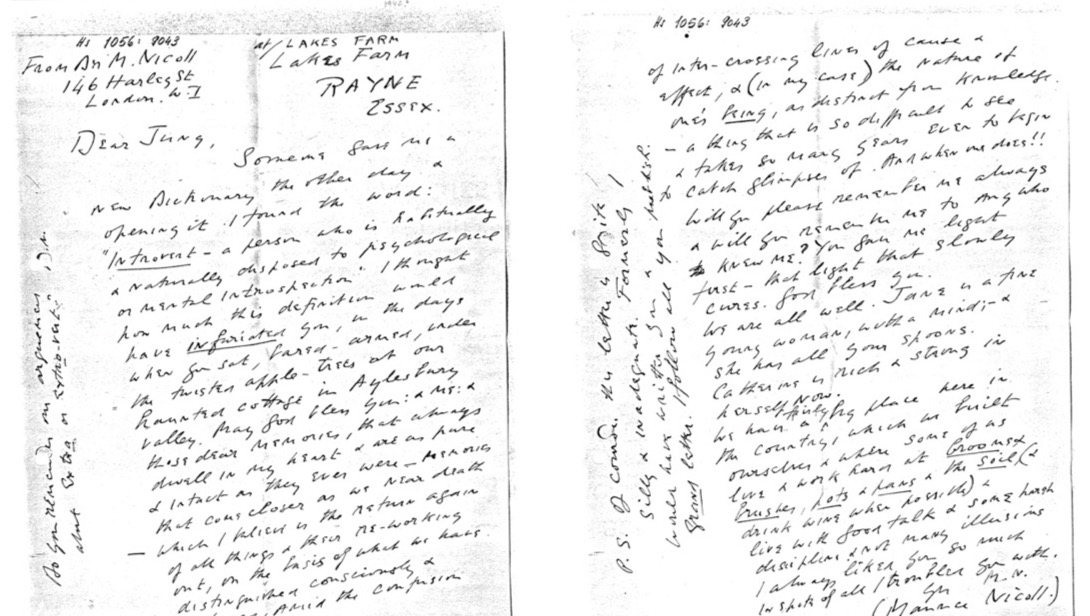 Hs 1056: 9043
From Dr M. Nicoll
146 Harley St
London. W I
at/ LAKES FARM
Lakes Farm
RAYNE
Essex.
Dear Jung,
Someone gave me a
new Dictionary the other day &
opening it I found the word:
"Introvert - a person who is habitually
& naturally disposed to psychological
or mental Introspection". I thought
how much this definition would
have infuriated you, in the days
when you sat, bared-armed, under
the twisted apple-trees at our
haunted cottage in Aylesbury
valley. Pray God bless you: & me: &
those dear memories, that always
dwell in my heart & are as pure
& intact as they ever were - memories
that come closer as we near death
- which I believe is the return again
of all things & their re-working
out, on the basis of what we have
distinguished consciously &
amid the confusion
Do you remember our arguments
about Extra or Extro-vert?
Hs 1056: 9043
of inter-crossing lines of cause &
effect, & (in my case) the nature of
one's being, as distinct from knowledge.
- a thing that is so difficult to see
& takes so many years even to begin
to catch glimpses of. And when one does!!
Will you please remember me always
& will you remember me to any who
knew me? You gave me light
first - that light that slowly
cures. God bless you.
We are all well. Jane is a fine
young woman, with a mind; - &
she has all your spoons.
Catherine is rich & strong in
herself now.
We have a fairly big place here in
the country, which we built
ourselves & where some of us
live & work hard at brooms &
brushes, pots & pans & the soil, (&
drink wine when possible) &
live with good talk & some harsh
discipline & not many illusions
I always liked you so much
in spite of all I troubled you with.
Yr
M.N.
(Maurice Nicoll.)
P.S. I consider this letter a
silly & inadequate. Formerly I
would have written you a
grand letter. I follow all you publish.